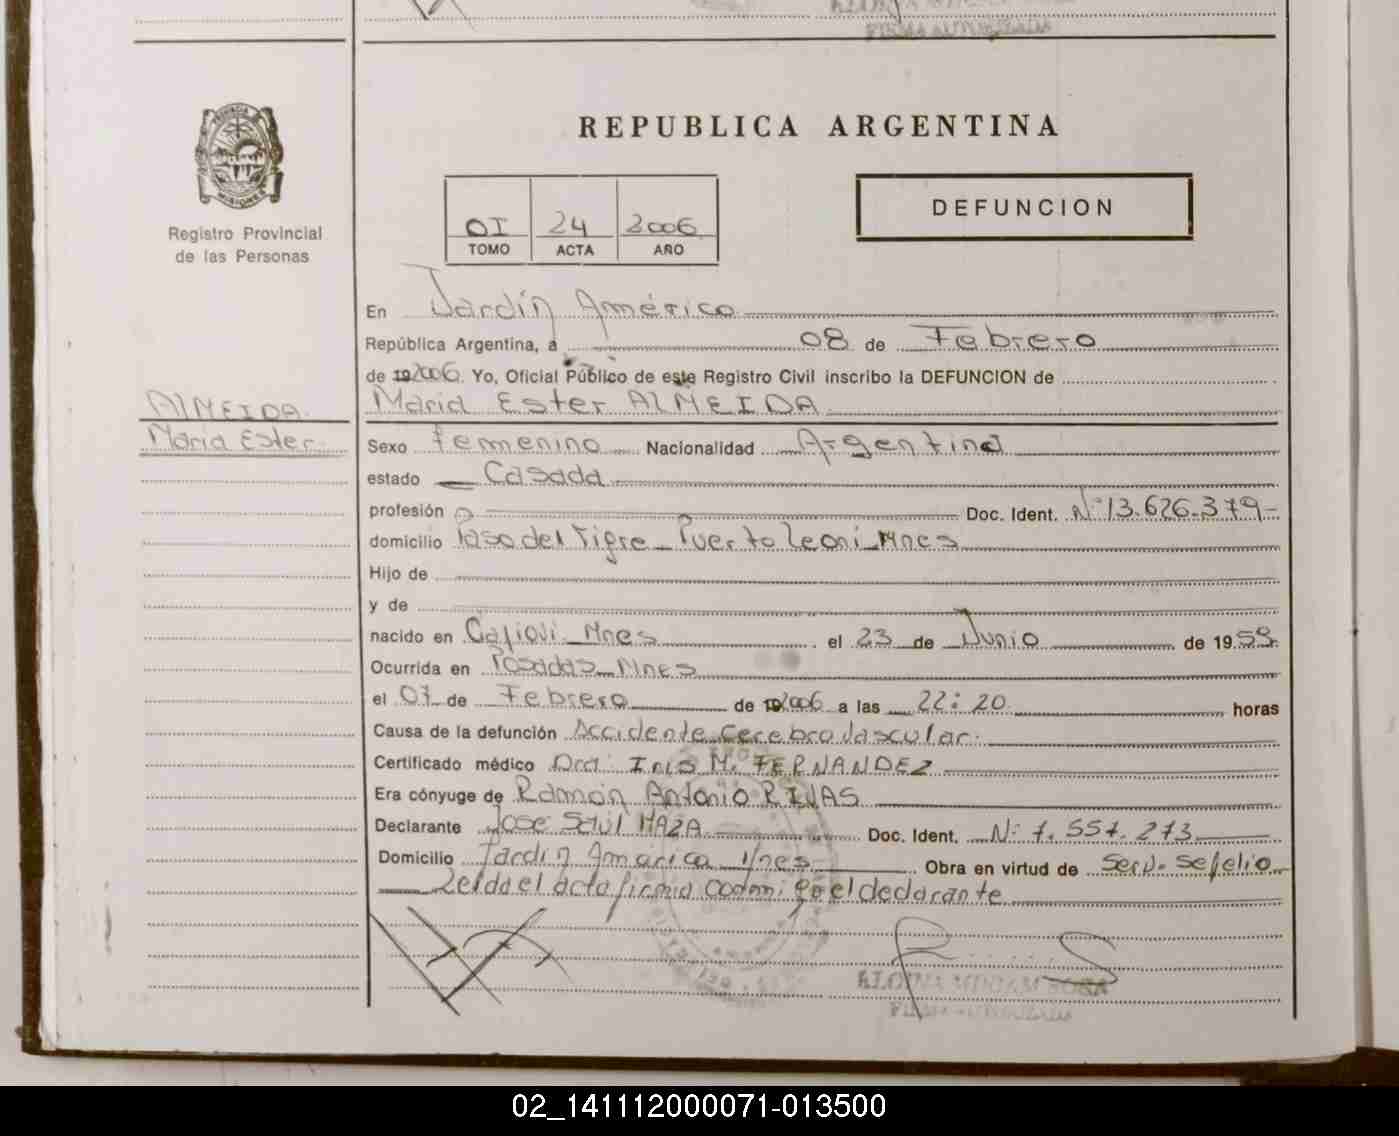 REPUBLICA ARGENTINA
PROVINCIA DE
MISIONES
Registro Provincial
de las Personas
OI 24 2006
TOMO ACTA AÑO
DEFUNCION
En Jardín América
República Argentina, a 08 de Febrero
de 192006 Yo, Oficial Público de este Registro Civil inscribo la DEFUNCION de
ALMEIDA
María Ester
María Ester ALMEIDA
Sexo femenino Nacionalidad Argentina
estado Casada
profesión Doc. Ident. Nº 13.626.379-
domicilio Paso del Tigre - Puerto Leoni - Mnes
Hijo de
y de
nacido en Mnes el 23 de Junio de 1959
Ocurrida en Posadas - Mnes
el 07 de Febrero de 192006 a las 22:20 horas
Causa de la defunción Accidente Cerebro Vascular.
Certificado médico Dra: Inis M. FERNANDEZ
Era cónyuge de Ramón Antonio RIVAS
Declarante José Saúl MAZA Doc. Ident. Nº 7.557.273
Domicilio Jardín America Mnes Obra en virtud de Serv. Sepelio
Leida el acta firma conmigo el declarante
FIRMA AUTORIZADA
02_141112000071-013500